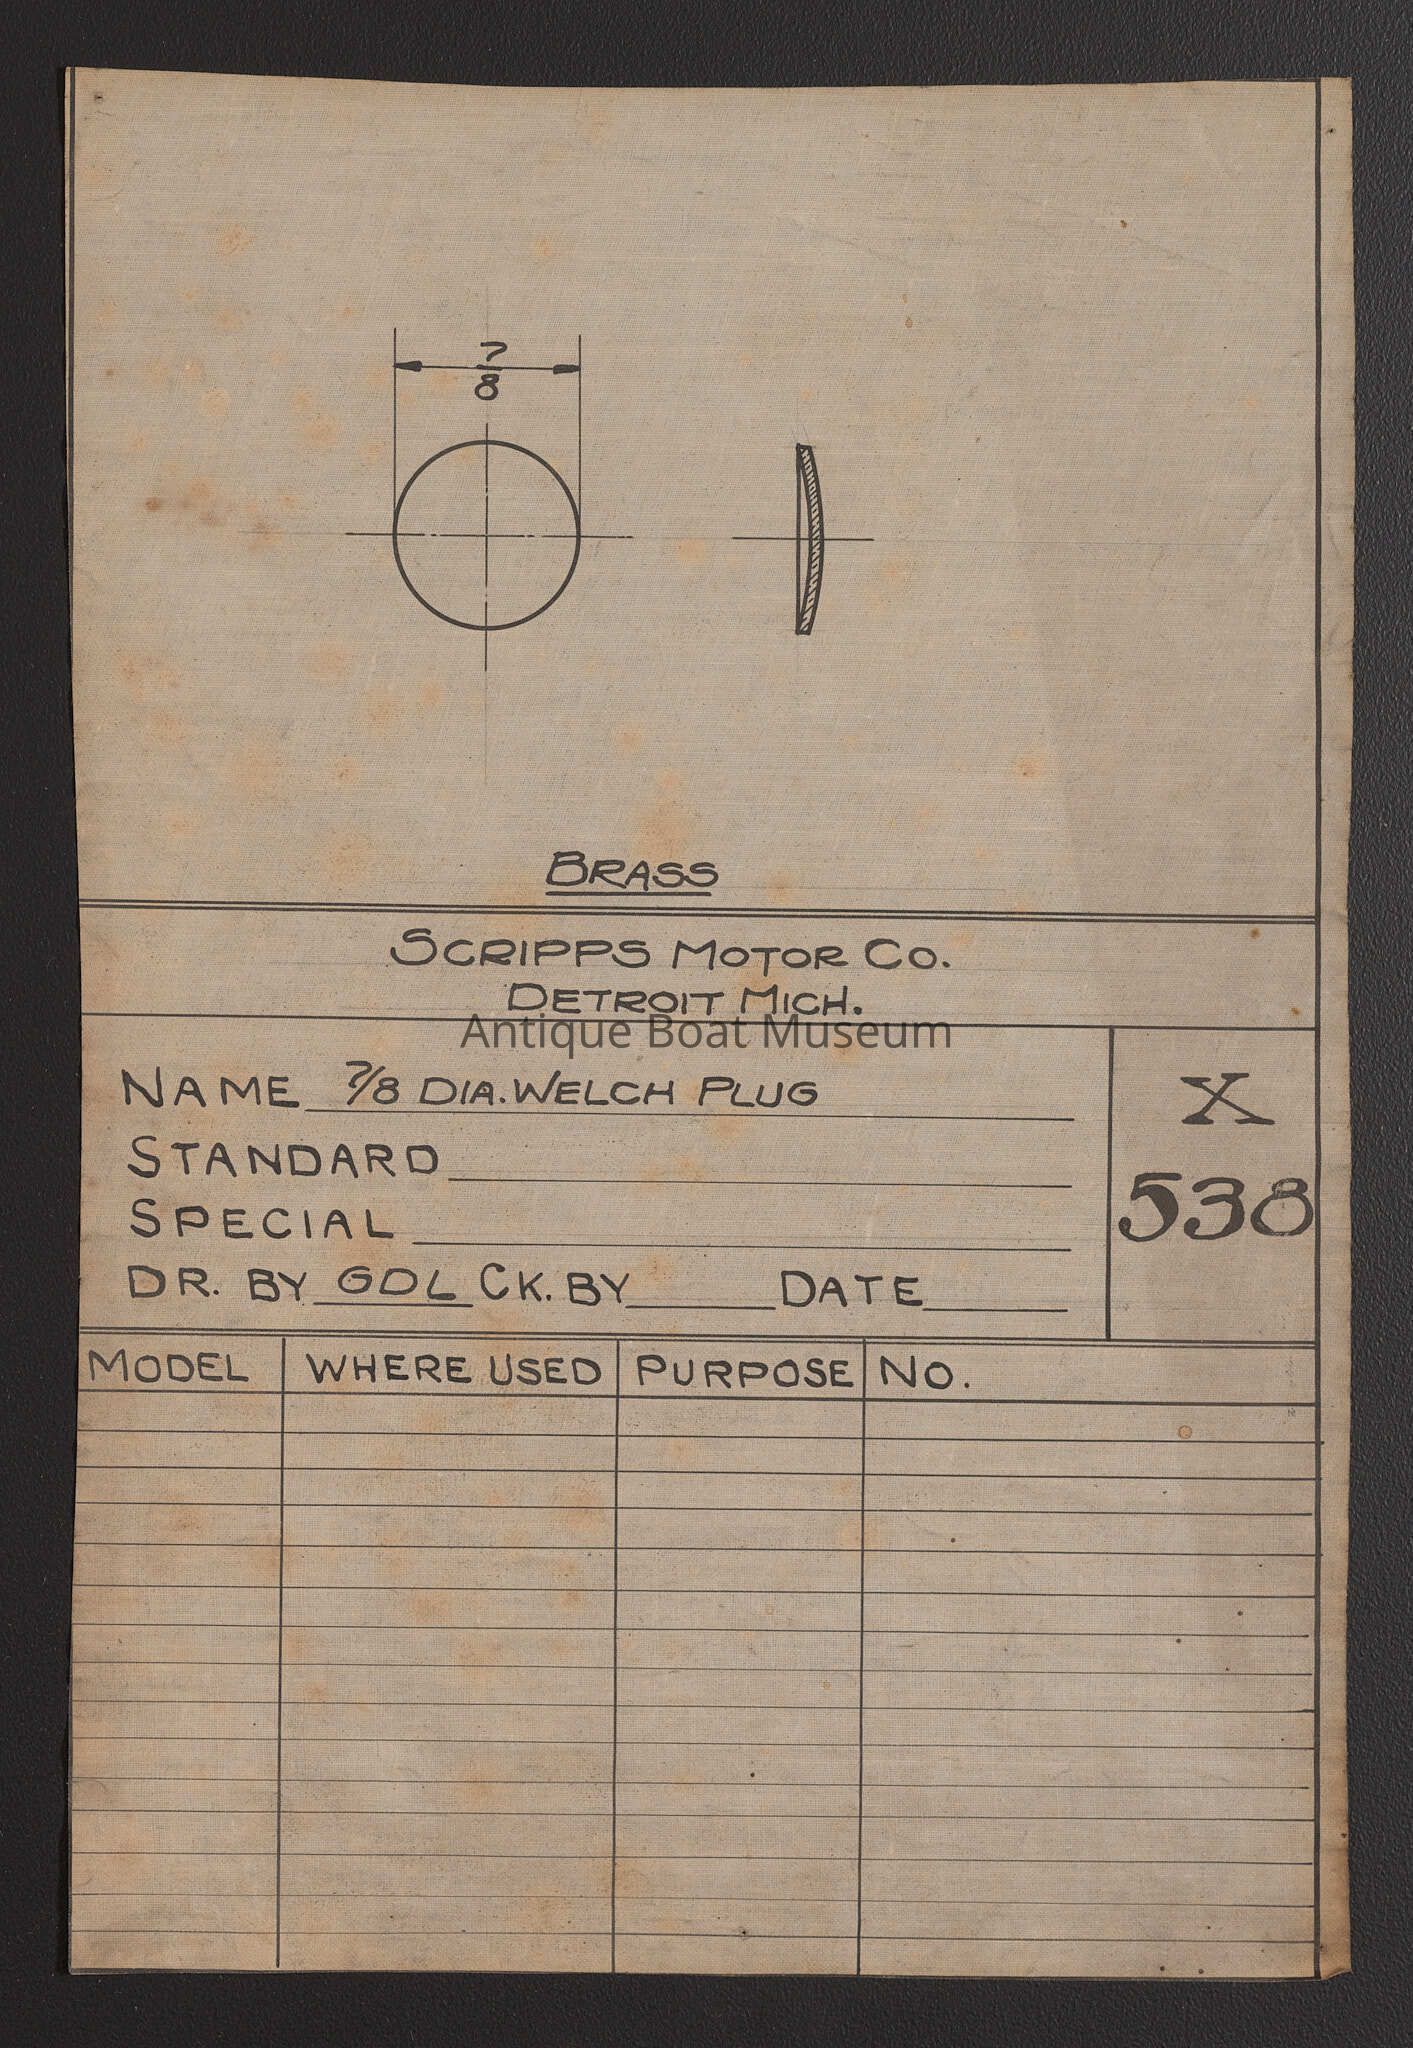 7
8
BRASS
SCRIPPS MOTOR CO.
DETROIT MICH.
Antique Boat Museum
NAME 7/8 DIA. WELCH PLUG
X
538
STANDARD
SPECIAL
DR. BY GDL CK. BY DATE
MODEL WHERE USED PURPOSE NO.